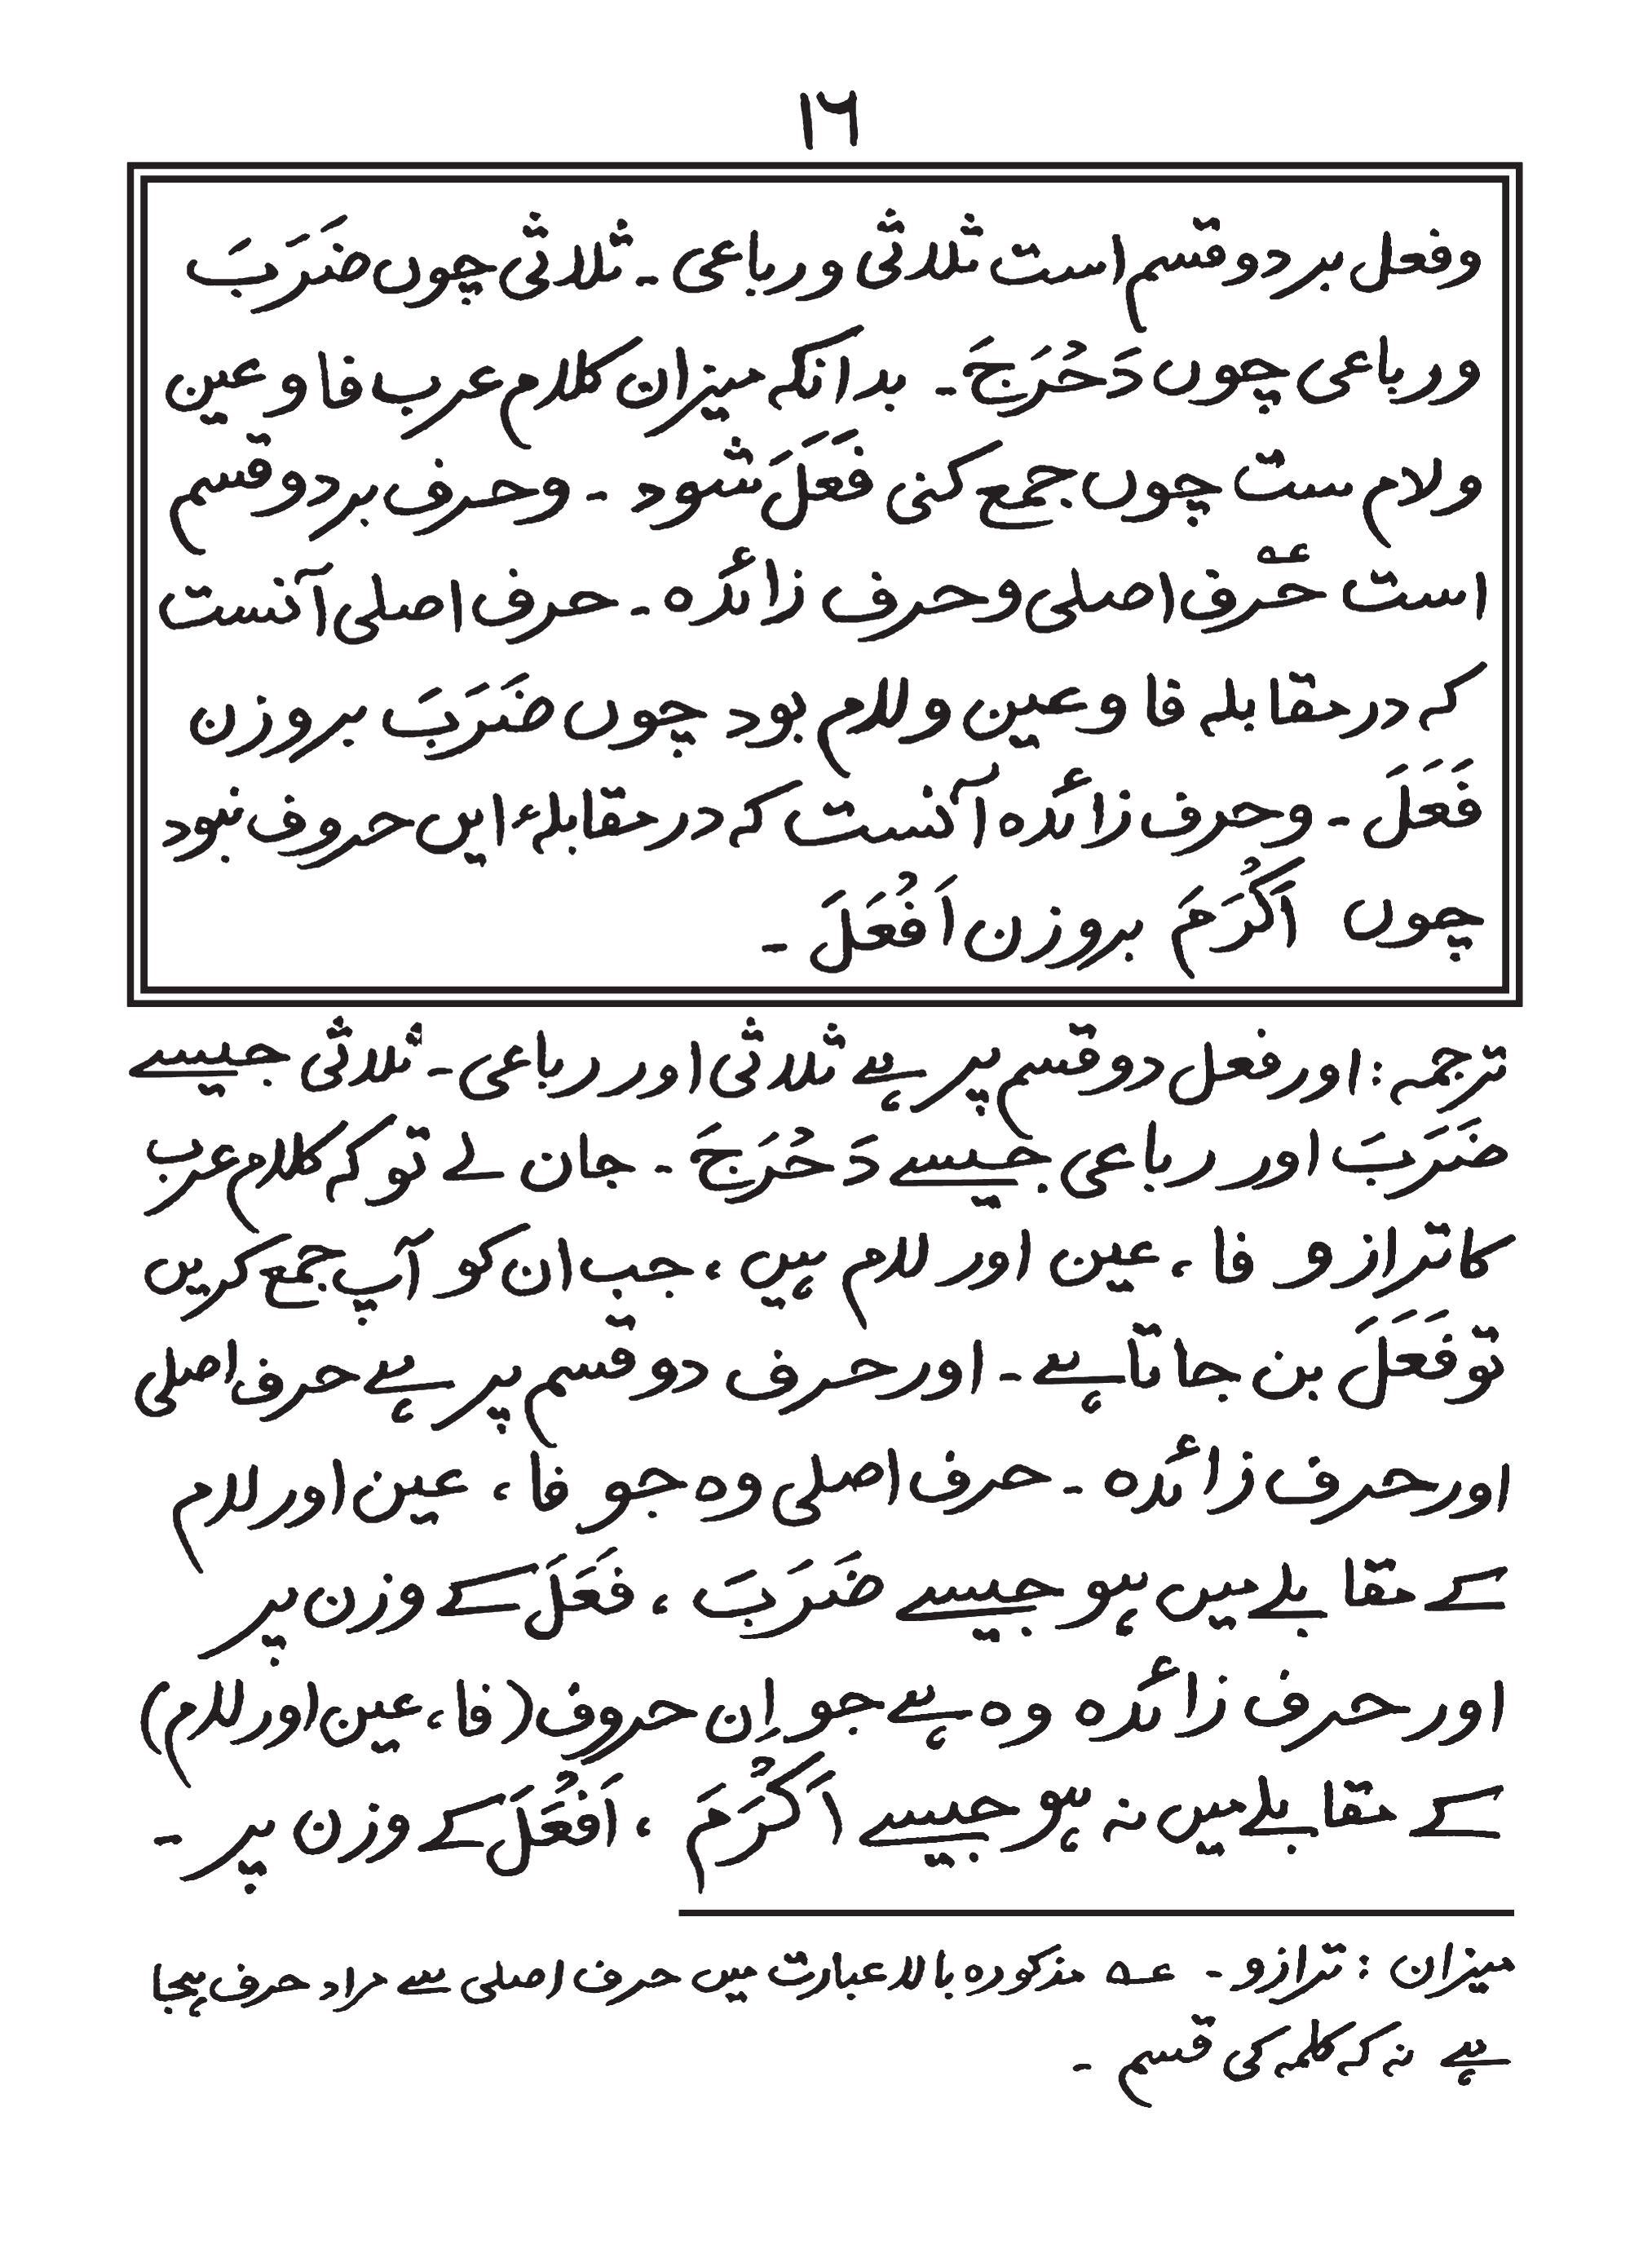 ١٦
وفعل بر دو قسم است ثلاثی و رباعی ۔ ثلاثی چوں ضَرَبَ
و رباعی چوں دَحْرَجَ۔ بدانکہ میزان کلام عرب فا و عین
و لام ست چوں جمع کنی فَعَلَ شود ۔ و حرف بر دو قسم
است حرف عہ اصلی و حرف زائدہ ۔ حرف اصلی آنست
کہ در مقابلہ فا و عین و لام بود چوں ضَرَبَ بروزن
فَعَلَ ۔ و حرف زائدہ آنست کہ در مقابلۂ ایں حروف نبود
چوں اَکْرَمَ بروزن اَفْعَلَ ۔
ترجمہ : اور فعل دو قسم پر ہے ثلاثی اور رباعی ۔ ثلاثی جیسے
ضَرَبَ اور رباعی جیسے دَحْرَجَ ۔ جان لے تو کہ کلام عرب
کا ترازو فا ، عین اور لام ہیں ، جب ان کو آپ جمع کریں
تو فَعَلَ بن جاتا ہے ۔ اور حرف دو قسم پر ہے حرف اصلی
اور حرف زائدہ ۔ حرف اصلی وہ جو فا ، عین اور لام
کے مقابلے میں ہو جیسے ضَرَبَ ، فَعَلَ کے وزن پر
اور حرف زائدہ وہ ہے جو اِن حروف (فا ، عین اور لام)
کے مقابلے میں نہ ہو جیسے اَکْرَمَ ، اَفْعَلَ کے وزن پر ۔
میزان : ترازو ۔ عہ مذکورہ بالا عبارت میں حرف اصلی سے مراد حرف ہجا
ہے نہ کہ کلمہ کی قسم ۔